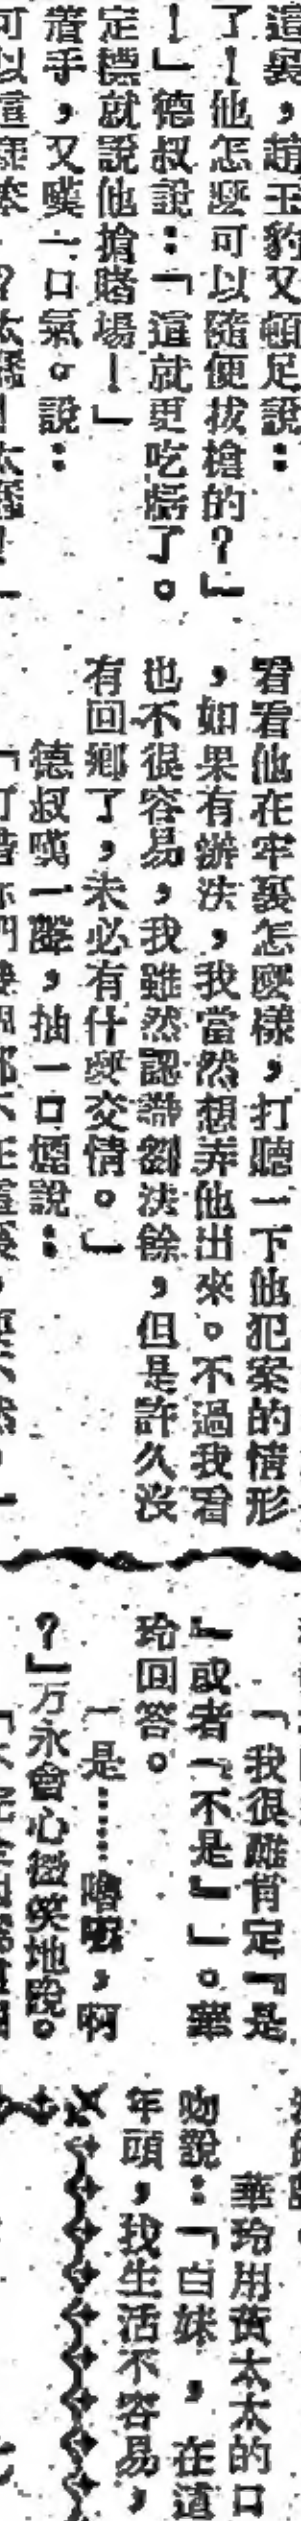 這裏，趙玉豹又頓足說：
了！他怎麼可以隨便拔槍的？」
！」德叔說：「這就更吃虧了。
定標就說他搶賭場！」
着手，又嘆一口氣。說：
看看他在牢裏怎麼樣，打聽一下他犯案的情形
，如果有辦法，我當然想弄他出來。不過我看
也不很容易，我雖然認識劉決餘，但是許久沒
有回鄉了，未必有什麼交情。」
德叔嘆一聲，抽一口煙說：
「我很難肯定『是
』或者『不是』」。華
玲回答。
「是……嚕囌，啊
？」万永會心微笑地說。
華玲用黃太太的口
吻說：「白妹，在這
年頭，找生活不容易，